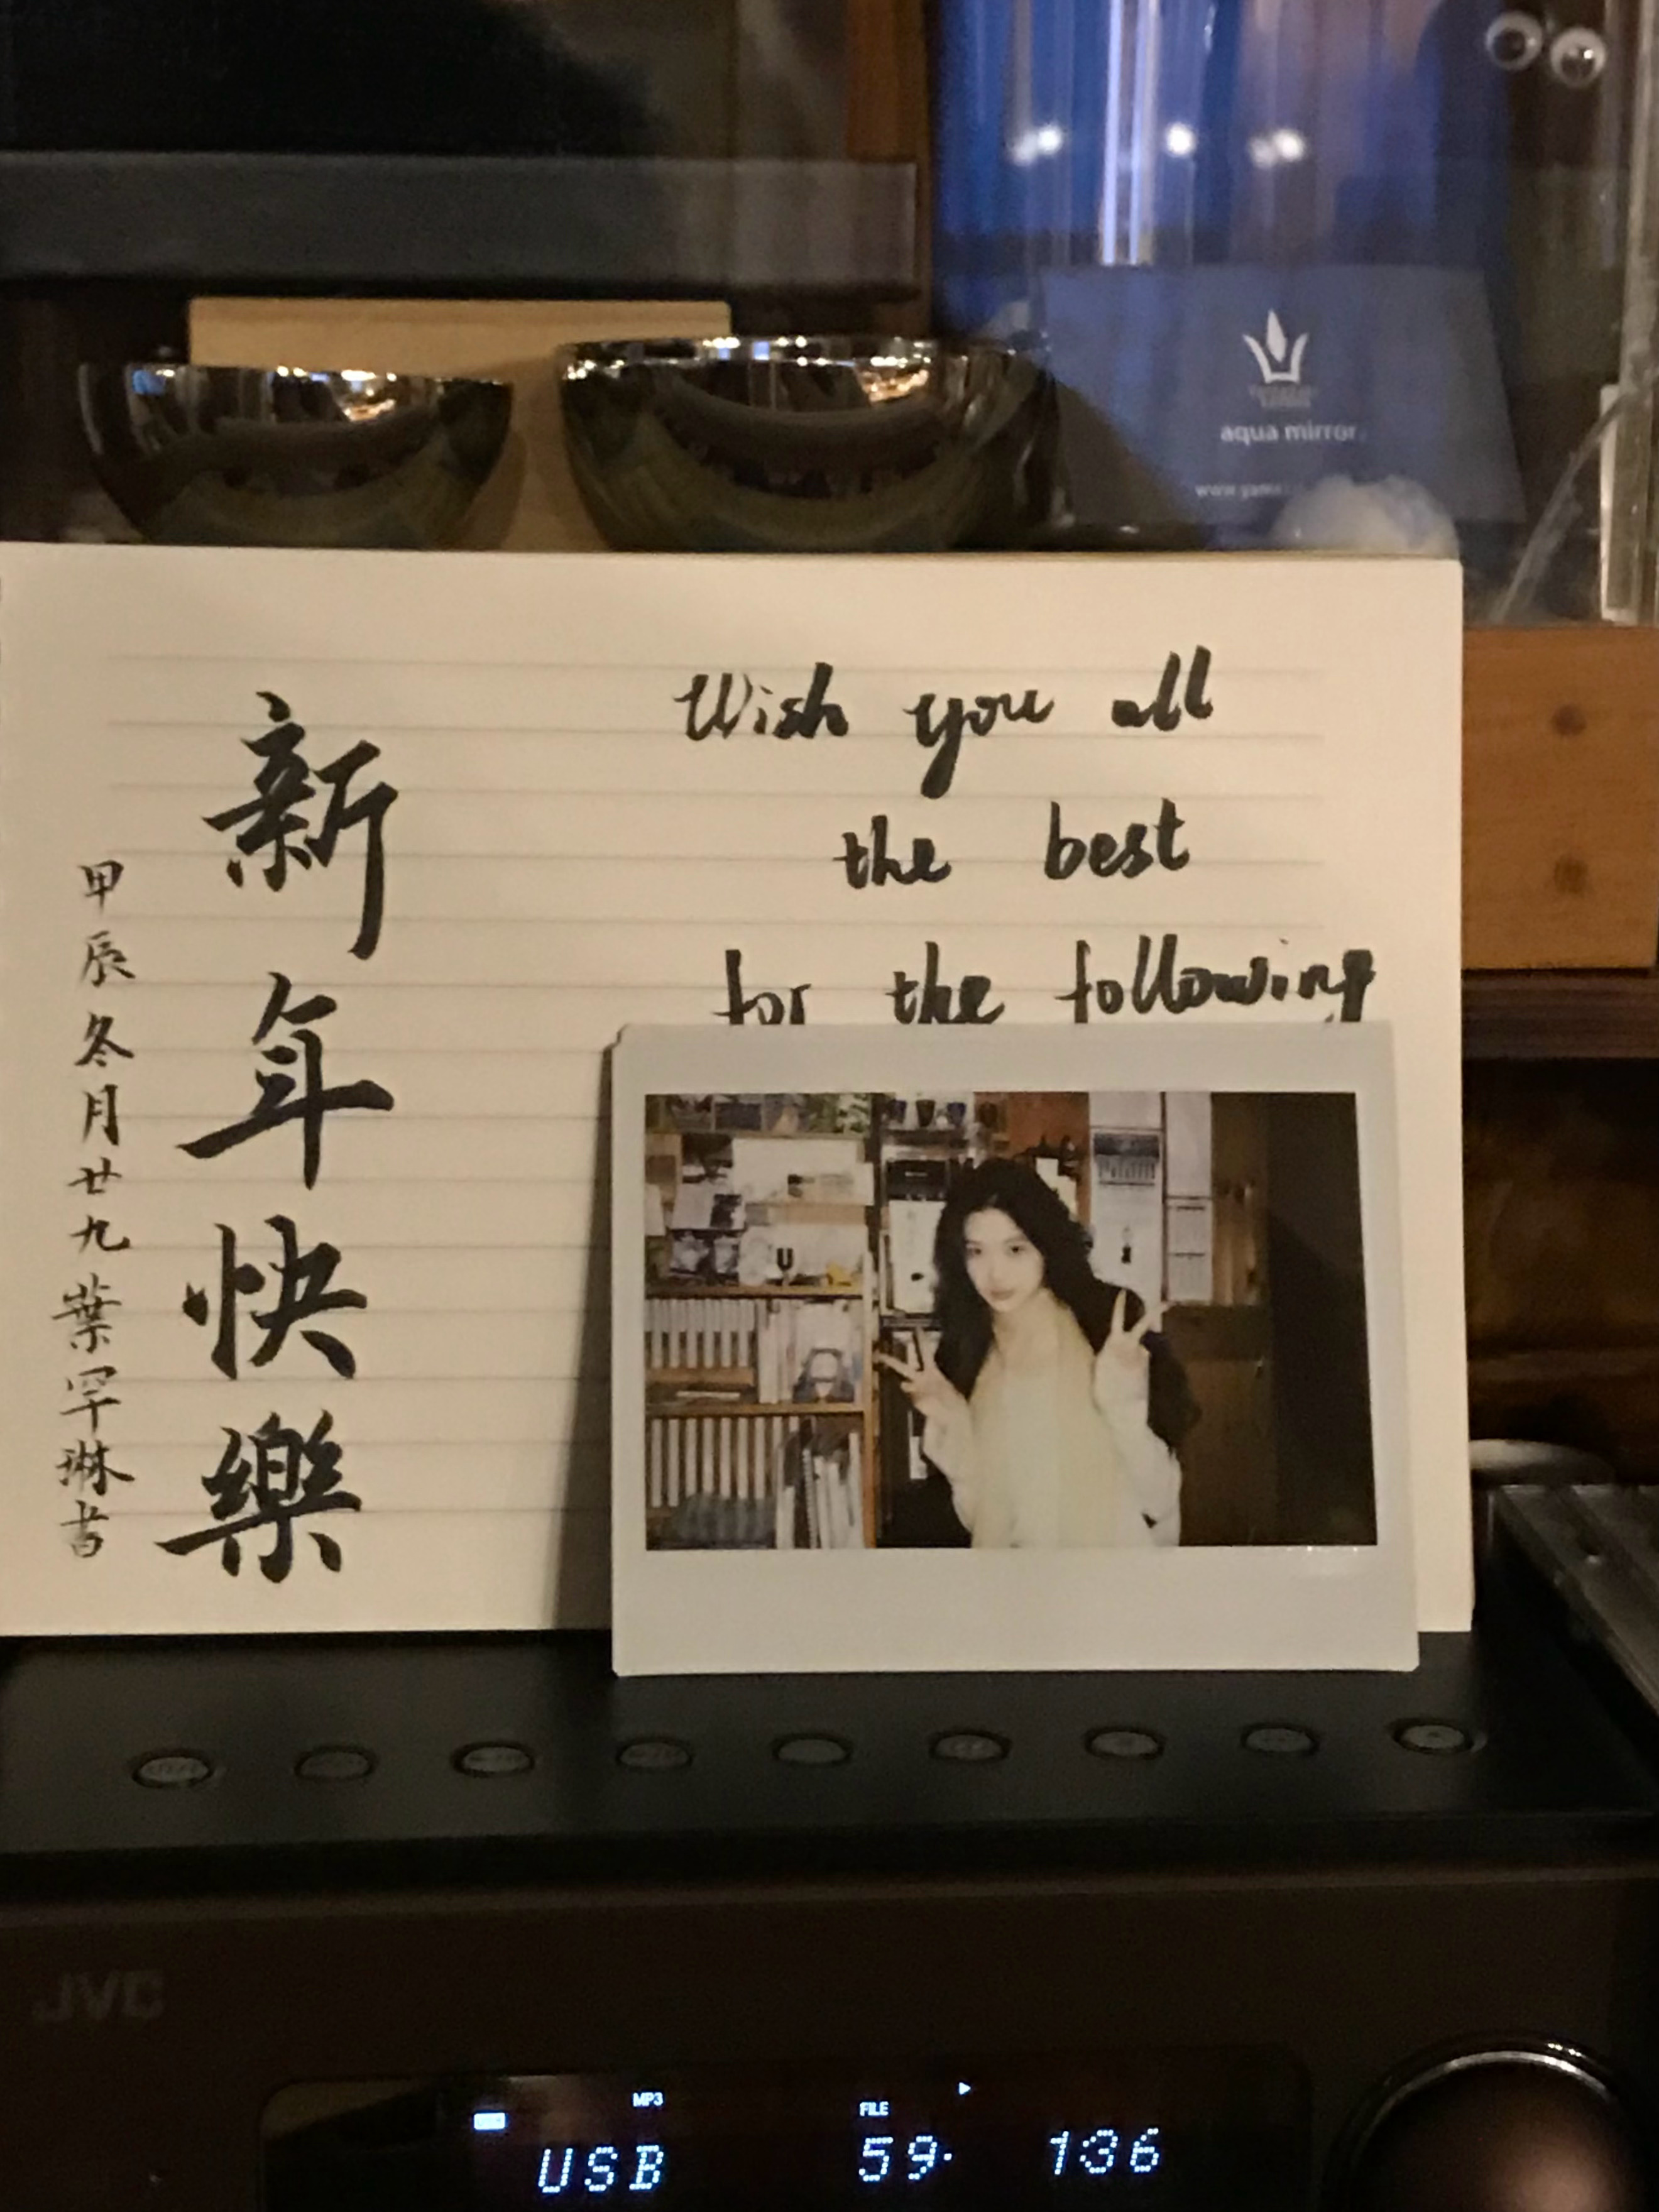 aqua mirror
新年快樂
甲辰冬月廿九葉罕琳書
Wish you all
the best
for the following
JVC
MP3
FILE
USB
59
136